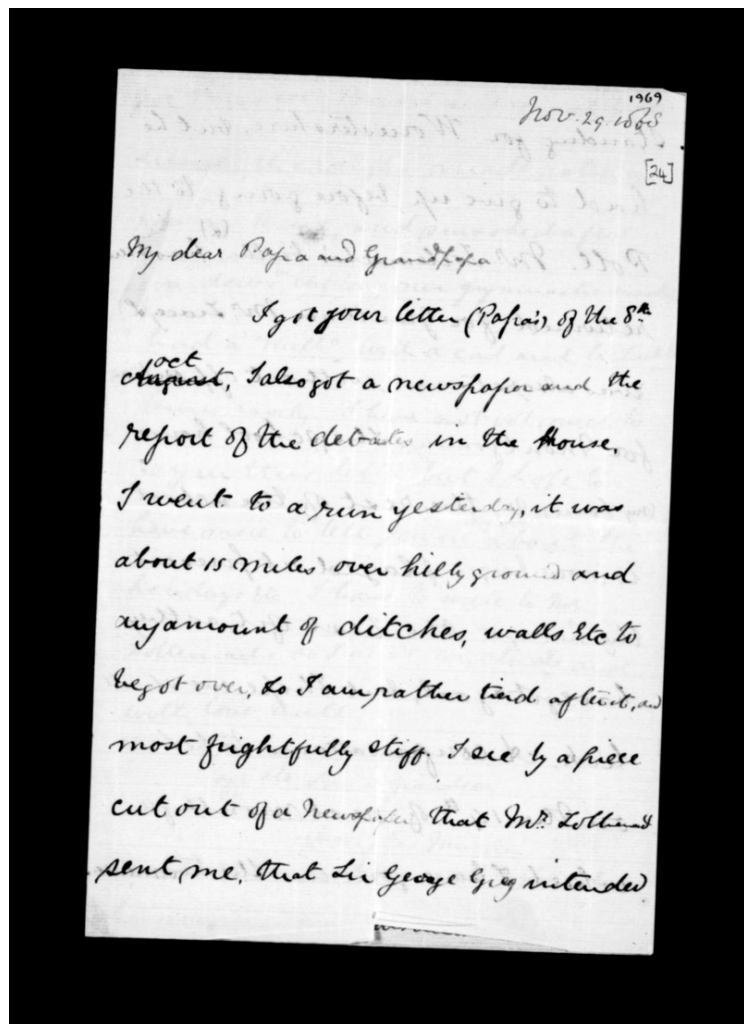 1969
Nov. 29. 1868
[24]
My dear Papa and Grandpapa
I got your letter (Papa's) of the 8th
oct
August, I also got a newspaper and the
report of the debates in the House.
I went to a run yesterday, it was
about 15 miles over hilly ground and
any amount of ditches, walls Etc to
be got over, so I am rather tired after it, and
most frightfully stiff. I see by a piece
cut out of a Newspaper that Mr.
sent me, that Sir George Greg intended